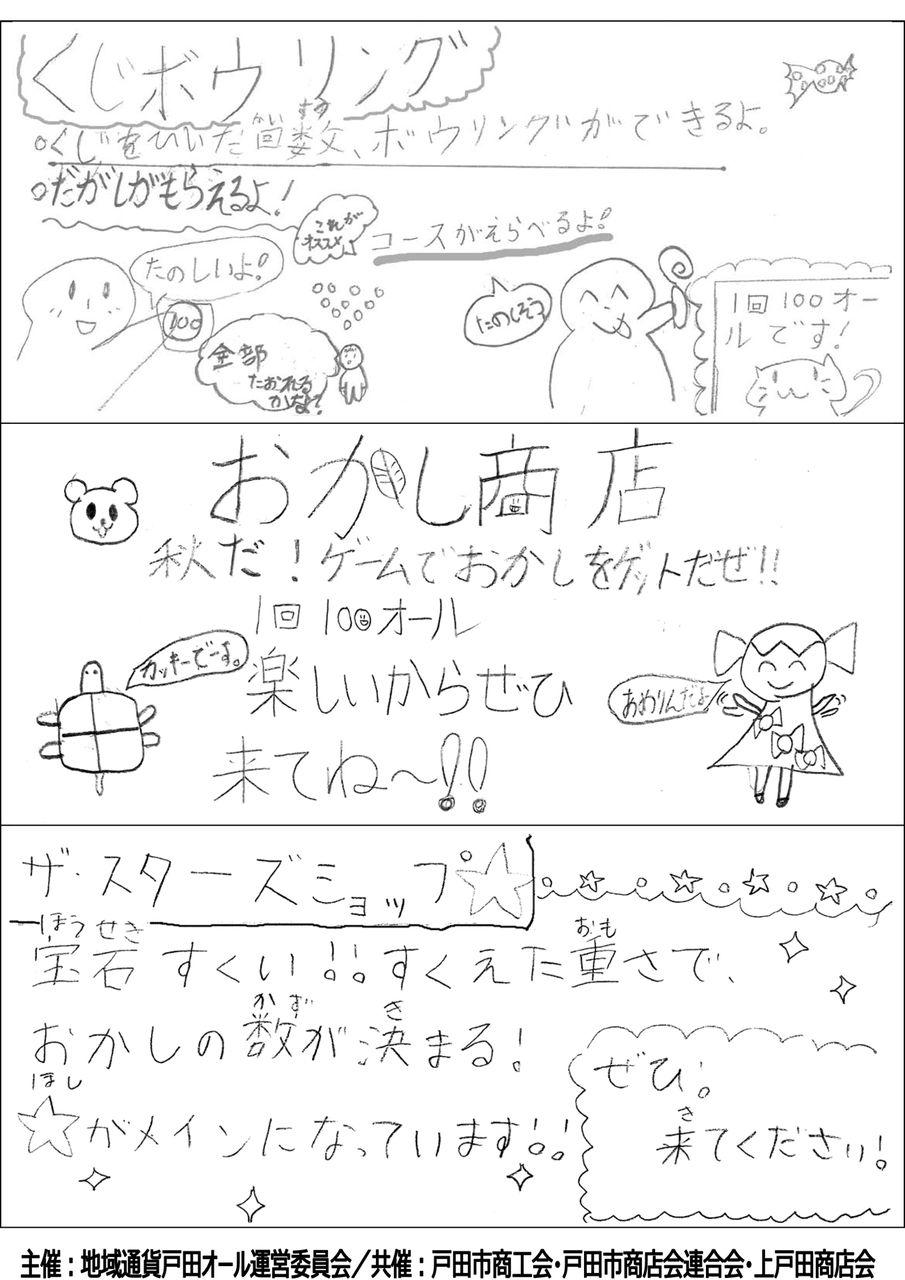 くじボウリング
くじをひいた回数、ボウリングができるよ。
かい すう
だがしがもらえるよ！
これが
オススメ♪
コースがえらべるよ！
たのしいよ！
100
全部
たおれる
かなぁ？
たのしそう
1回100オー
ルです！
おかし商店
秋だ！ゲームでおかしをゲットだぜ！！
1回100オール
カッキーでーす。
楽しいからぜひ
あめりんだよ
来てね〜！！
ザ・スターズショップ☆
ほうせき おも
宝石すくい！！すくえた重さで、
かず き
おかしの数が決まる！
ほし
☆がメインになっています！！
ぜひ！
き
来てください！
主催：地域通貨戸田オール運営委員会／共催：戸田市商工会・戸田市商店会連合会・上戸田商店会